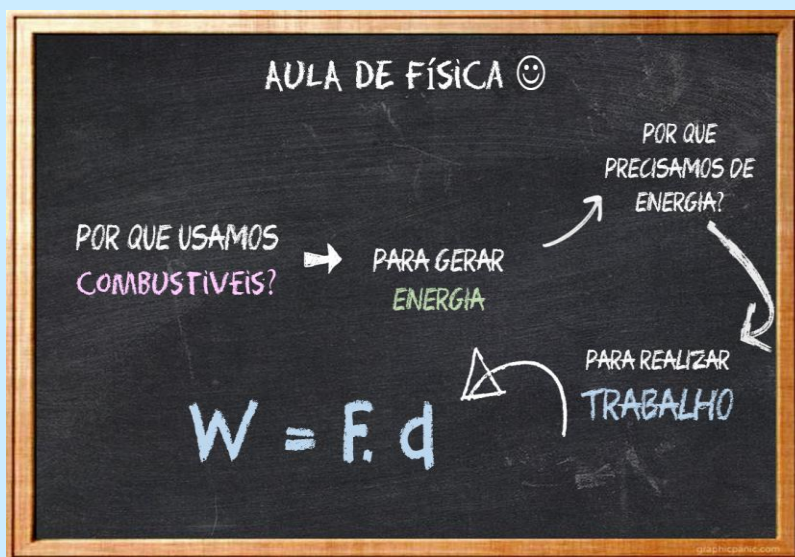 AULA DE FÍSICA ☺
POR QUE USAMOS
COMBUSTIVEIS?
PARA GERAR
ENERGIA
POR QUE
PRECISAMOS DE
ENERGIA?
PARA REALIZAR
TRABALHO
W = F. d
graphicpanic.com